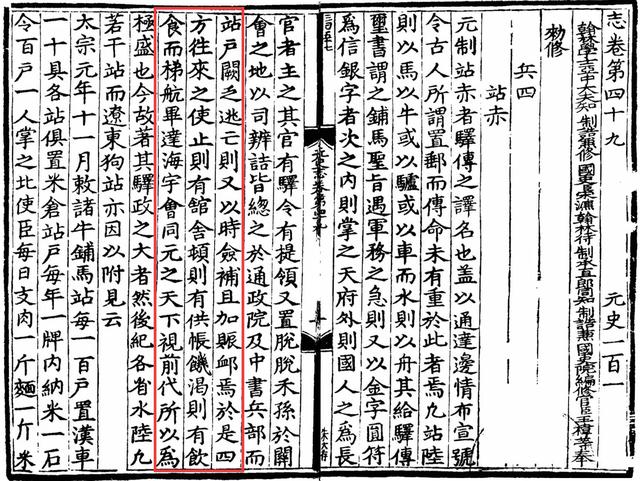 志卷第四十九 元史一百一
翰林學士亞中大夫知 制誥兼修 國史臣宋濂翰林待制承直郎同知 制誥兼國史院編修官臣王褘等奉
勑修
兵四
站赤
元制站赤者驛傳之譯名也盖以通達邊情布宣號
令古人所謂置郵而傳命未有重於此者焉凡站陸
則以馬以牛或以驢或以車而水則以舟其給驛傳
璽書謂之鋪馬聖旨遇軍務之急則又以金字圓符
爲信銀字者次之内則掌之天府外則國人之爲長
官者主之其官有驛令有提領又置脫脫禾孫於關
會之地以司辨詰皆總之於通政院及中書兵部而
站戶闕乏逃亡則又以時僉補且加賑䘏焉於是四
方往來之使止則有館舍頓則有供帳饑渴則有飲
食而梯航畢達海宇會同元之天下視前代所以爲
極盛也今故著其驛政之大者然後紀各省水陸九
若干站而遼東狗站亦因以附見云
太宗元年十一月敕諸牛鋪馬站每一百戶置漢車
一十具各站俱置米倉站戶每年一牌内納米一石
令百戶一人掌之比使臣每日支肉一斤麵一斤米